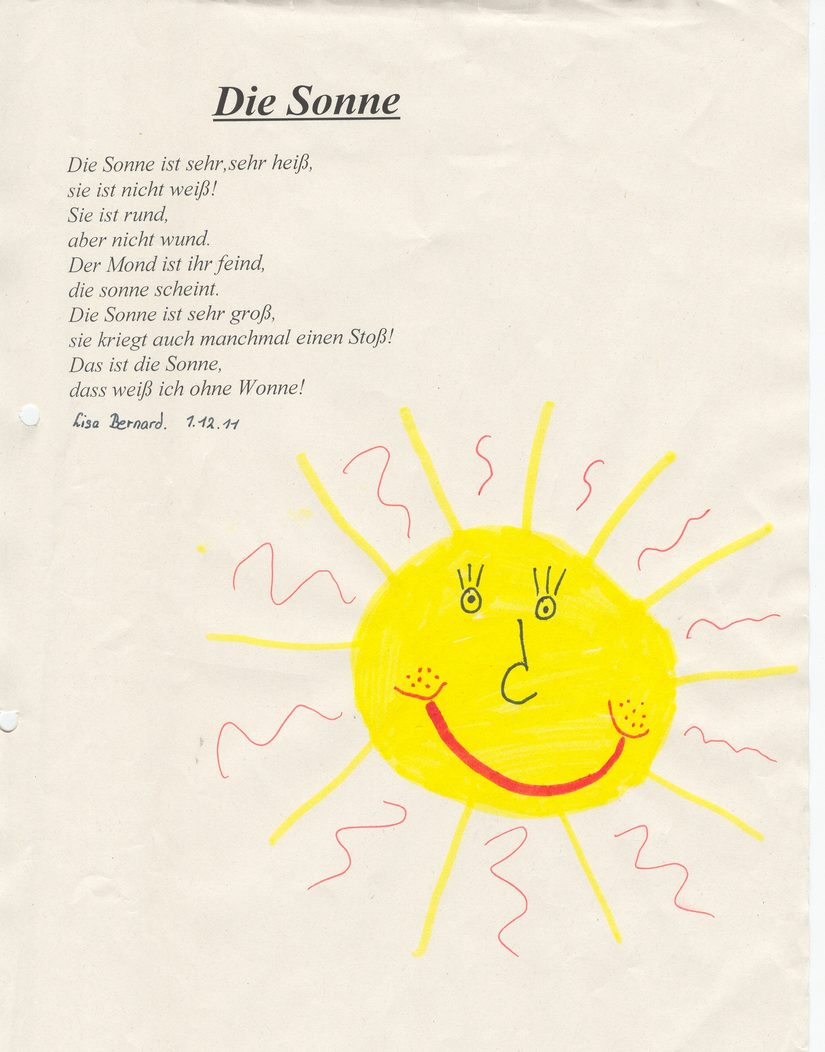 Die Sonne
Die Sonne ist sehr,sehr heiß,
sie ist nicht weiß!
Sie ist rund,
aber nicht wund.
Der Mond ist ihr feind,
die sonne scheint.
Die Sonne ist sehr groß,
sie kriegt auch manchmal einen Stoß!
Das ist die Sonne,
dass weiß ich ohne Wonne!
Lisa Bernard. 1.12.11